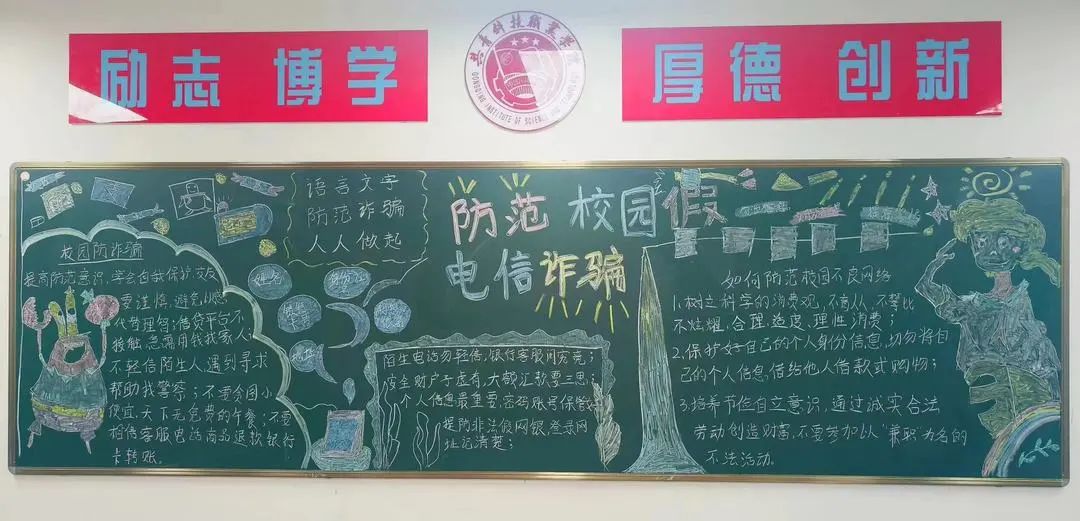 励志 博学
共青科技职业学院
GONGQING INSTITUTE OF SCIENCE AND TECHNOLOGY
厚德 创新
校园防诈骗
提高防范意识,学会自我保护,交友
要谨慎,避免以感
代替理智;借贷平台不
接触,急需用钱找家人;
不轻信陌生人,遇到寻求
帮助找警察;不要贪图小
便宜,天下无免费的午餐;不要
相信客服电话商品退款银行
卡转账。
语言文字
防范诈骗
人人做起
姓名
身份证
防范 校园 假
电信 诈骗
陌生电话勿轻信,银行客服问究竟;
安全财户子虚有,大额汇款要三思;
个人信息最重要,密码账号保管好
提防非法假网银,登录网
址记清楚;
如何防范校园不良网络
1.树立科学的消费观,不盲从、不攀比
不炫耀,合理、适度、理性消费;
2.保护好自己的个人身份信息,切勿将自
己的个人信息借给他人借款或购物;
3.培养节俭自立意识,通过诚实合法
劳动创造财富,不要参加以“兼职”为名的
不法活动。